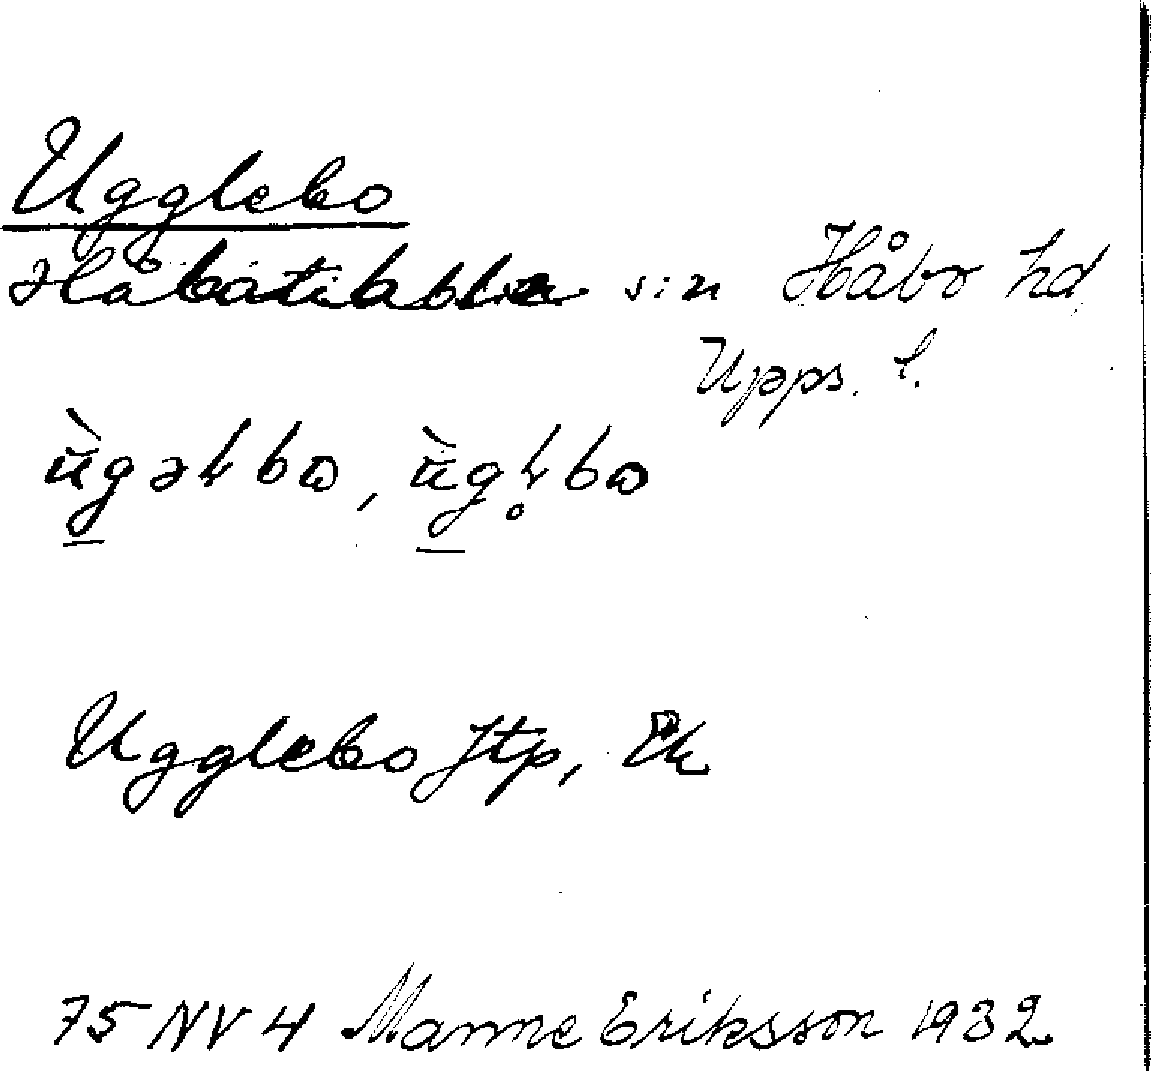 Ugglebo
Håbotibble sn Håbo hd
Upps. l.
ùgəɫbɷ, ùgɫ̥bɷ
Ugglebo Jtp, Ek
75 NV 4 Manne Eriksson 1932